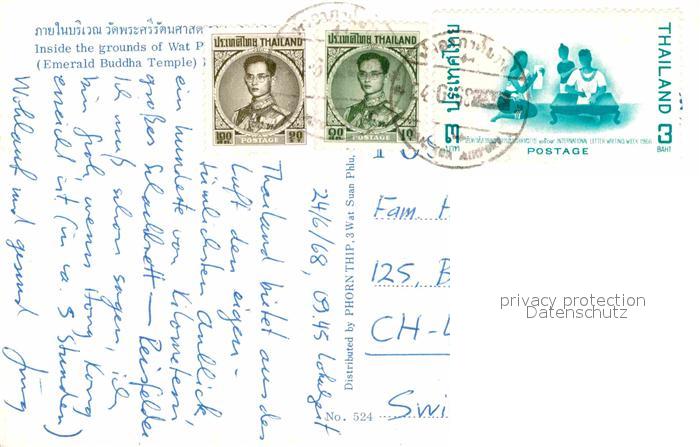 ภายในบริเวณ วัดพระศรีรัตนศาสด
Inside the grounds of Wat P
(Emerald Buddha Temple)
ประเทศไทย THAILAND
POSTAGE
ประเทศไทย THAILAND
POSTAGE
ประเทศไทย
THAILAND
3 บาท
3 BAHT
INTERNATIONAL LETTER WRITING WEEK 1966
POSTAGE
24/6/68, 09.45 Lokalzeit
Thailand bietet aus der
Luft den eigen-
tümlichsten Anblick,
ein hunderte von Kilometern
großes Schachbrett — Reisfelder
Ich muß schon sagen, ich
bin froh, wenn Hong Kong
erreicht ist (in ca. 3 Stunden)
Wohlauf und gesund
Distributed by PHORN THIP, 3 Wat Suan Phlu,
No. 524
Fam. H
125, B
CH-L
Swi
privacy protection
Datenschutz